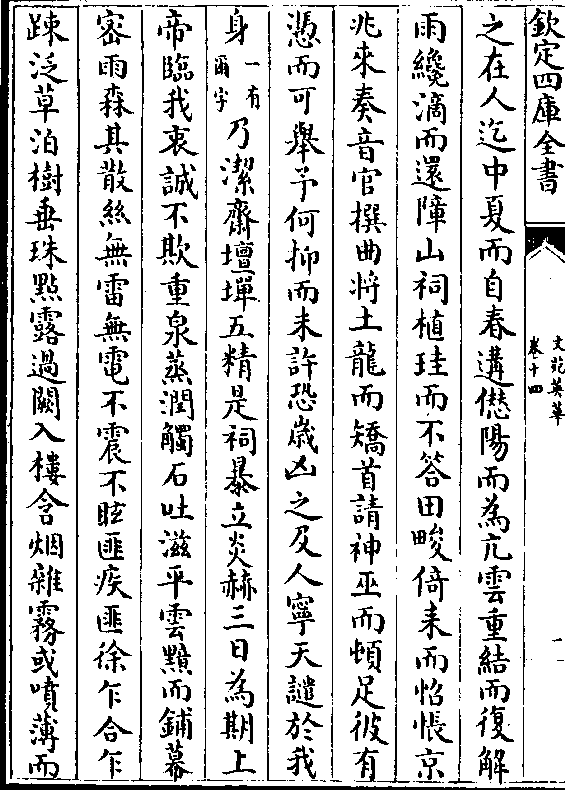 欽定四庫全書
文苑英華
卷十四
一
之在人迄中夏而自春遘僽陽而為亢雲重結而復解
雨纔滴而還障山祠植珪而不答田畯倚耒而怊悵京
兆來奏音官撰曲將土龍而矯首請神巫而頓足彼有
憑而可舉予何抑而未許恐嵗凶之及人寧天譴於我
身一有爾字乃潔齋壇墠五精是祠暴立炎赫三日為期上
帝臨我衷誠不欺重泉蒸潤觸石吐滋平雲黯而鋪幕
宻雨森其散絲無雷無電不震不眩匪疾匪徐乍合乍
踈泛草泊樹垂珠㸃露過闕入樓含烟雜霧或噴薄而